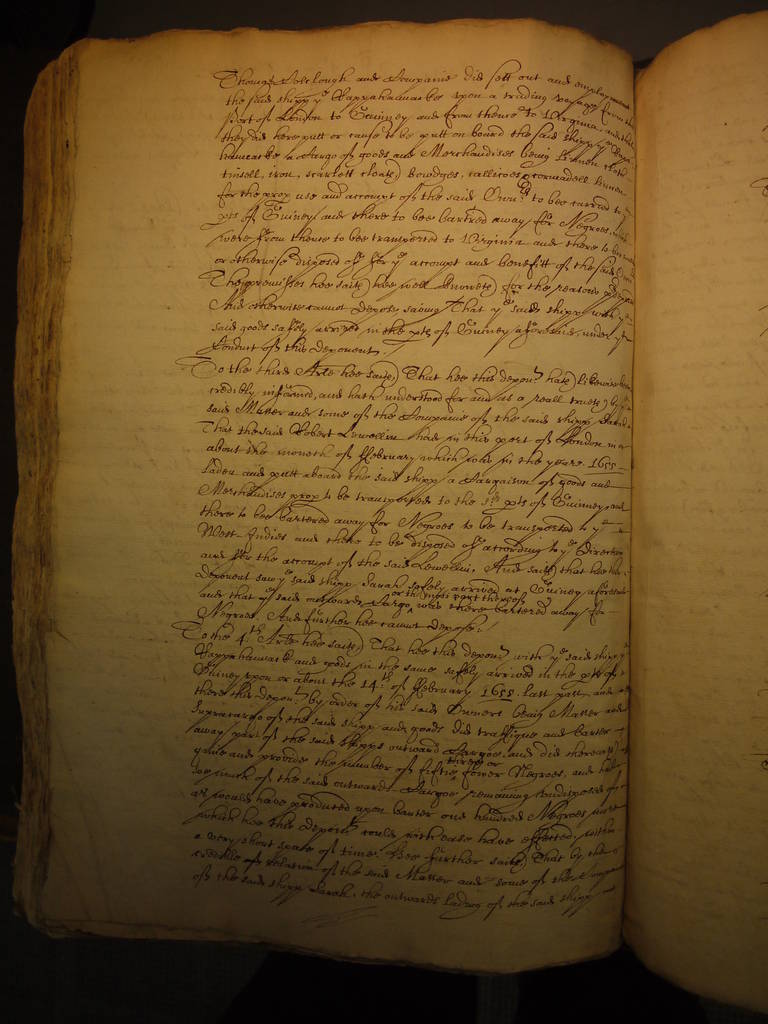 Thomas Colclough and Companie did sett out and employ
the said shipp ye Rappahannacke upon a trading voyage from the
Port of London to Guinney and from thence to Virginia, and that
they did here putt or cause to be putt on board the said shipp ye Rappa-
hannacke a Cargo of goods and Merchandises being Linnen cloth
tinsell, iron, scarlett cloath, callicoes,
for the prop use and accompt of the said Owners to bee carried to ye
pts of Guiney and there to bee bartred away for Negroes, which
were from thence to bee transported to Virginia and there to bee
or otherwise disposed of for ye accompt and benefitt of the said Owners
The premisses hee saith hee well knoweth for the reasons
And otherwise cannot depose saving That ye said shipp with ye
said goods safely arrived in the pts of Guiney aforesaid, under ye
Conduct of this deponent.
To the third Arle hee saith, That hee this depont hath likewise been
credibly informed, and hath understood for and as a reall trueth by ye
said Master and some of the Companie of the said shipp Sarah
That the said Robert Lewellin had in this port of London in or
about the moneth of ffebruary which was in the yeare 1655
laden and putt aboard the said shipp a Cargaison of goods and
Merchandises prop to be transported to the sd pts of Guinney, and
there to bee bartered away for Negroes to be transported to ye
West-Indies and there to be disposed of according to ye direction
and for the accompt of the said Lewellin. And saith that hee this
deponent saw ye said shipp Sarah safely arrived at Guiney aforesaid
and that ye said outwards Cargo or the most part thereof was there bartered away for
Negroes. And further hee cannot depose.
To the 4th Arle hee saith, That hee this depont with ye said shipp ye
Rappahannack and goods in the same safely arrived in the pts of
Guiney upon or about the 14th of ffebruary 1655 last past, and
there this depont by order of his said Owners being Master and
Supracargo of the said shipp and goods did traffique and barter
away part of the said shipps outward Cargoe and did thereby
gaine and provide the number of fiftie three or fower Negroes, and had
soe much of the said outward Cargoe remaining undisposed of
as would have produced upon barter one hundred Negroes more
which hee this depont could with ease have effected, within
a very short space of time. Hee further saith That by the
credible relation of the said Master and some of the Companie
of the said shipp Sarah, the outwards lading of the said shipp